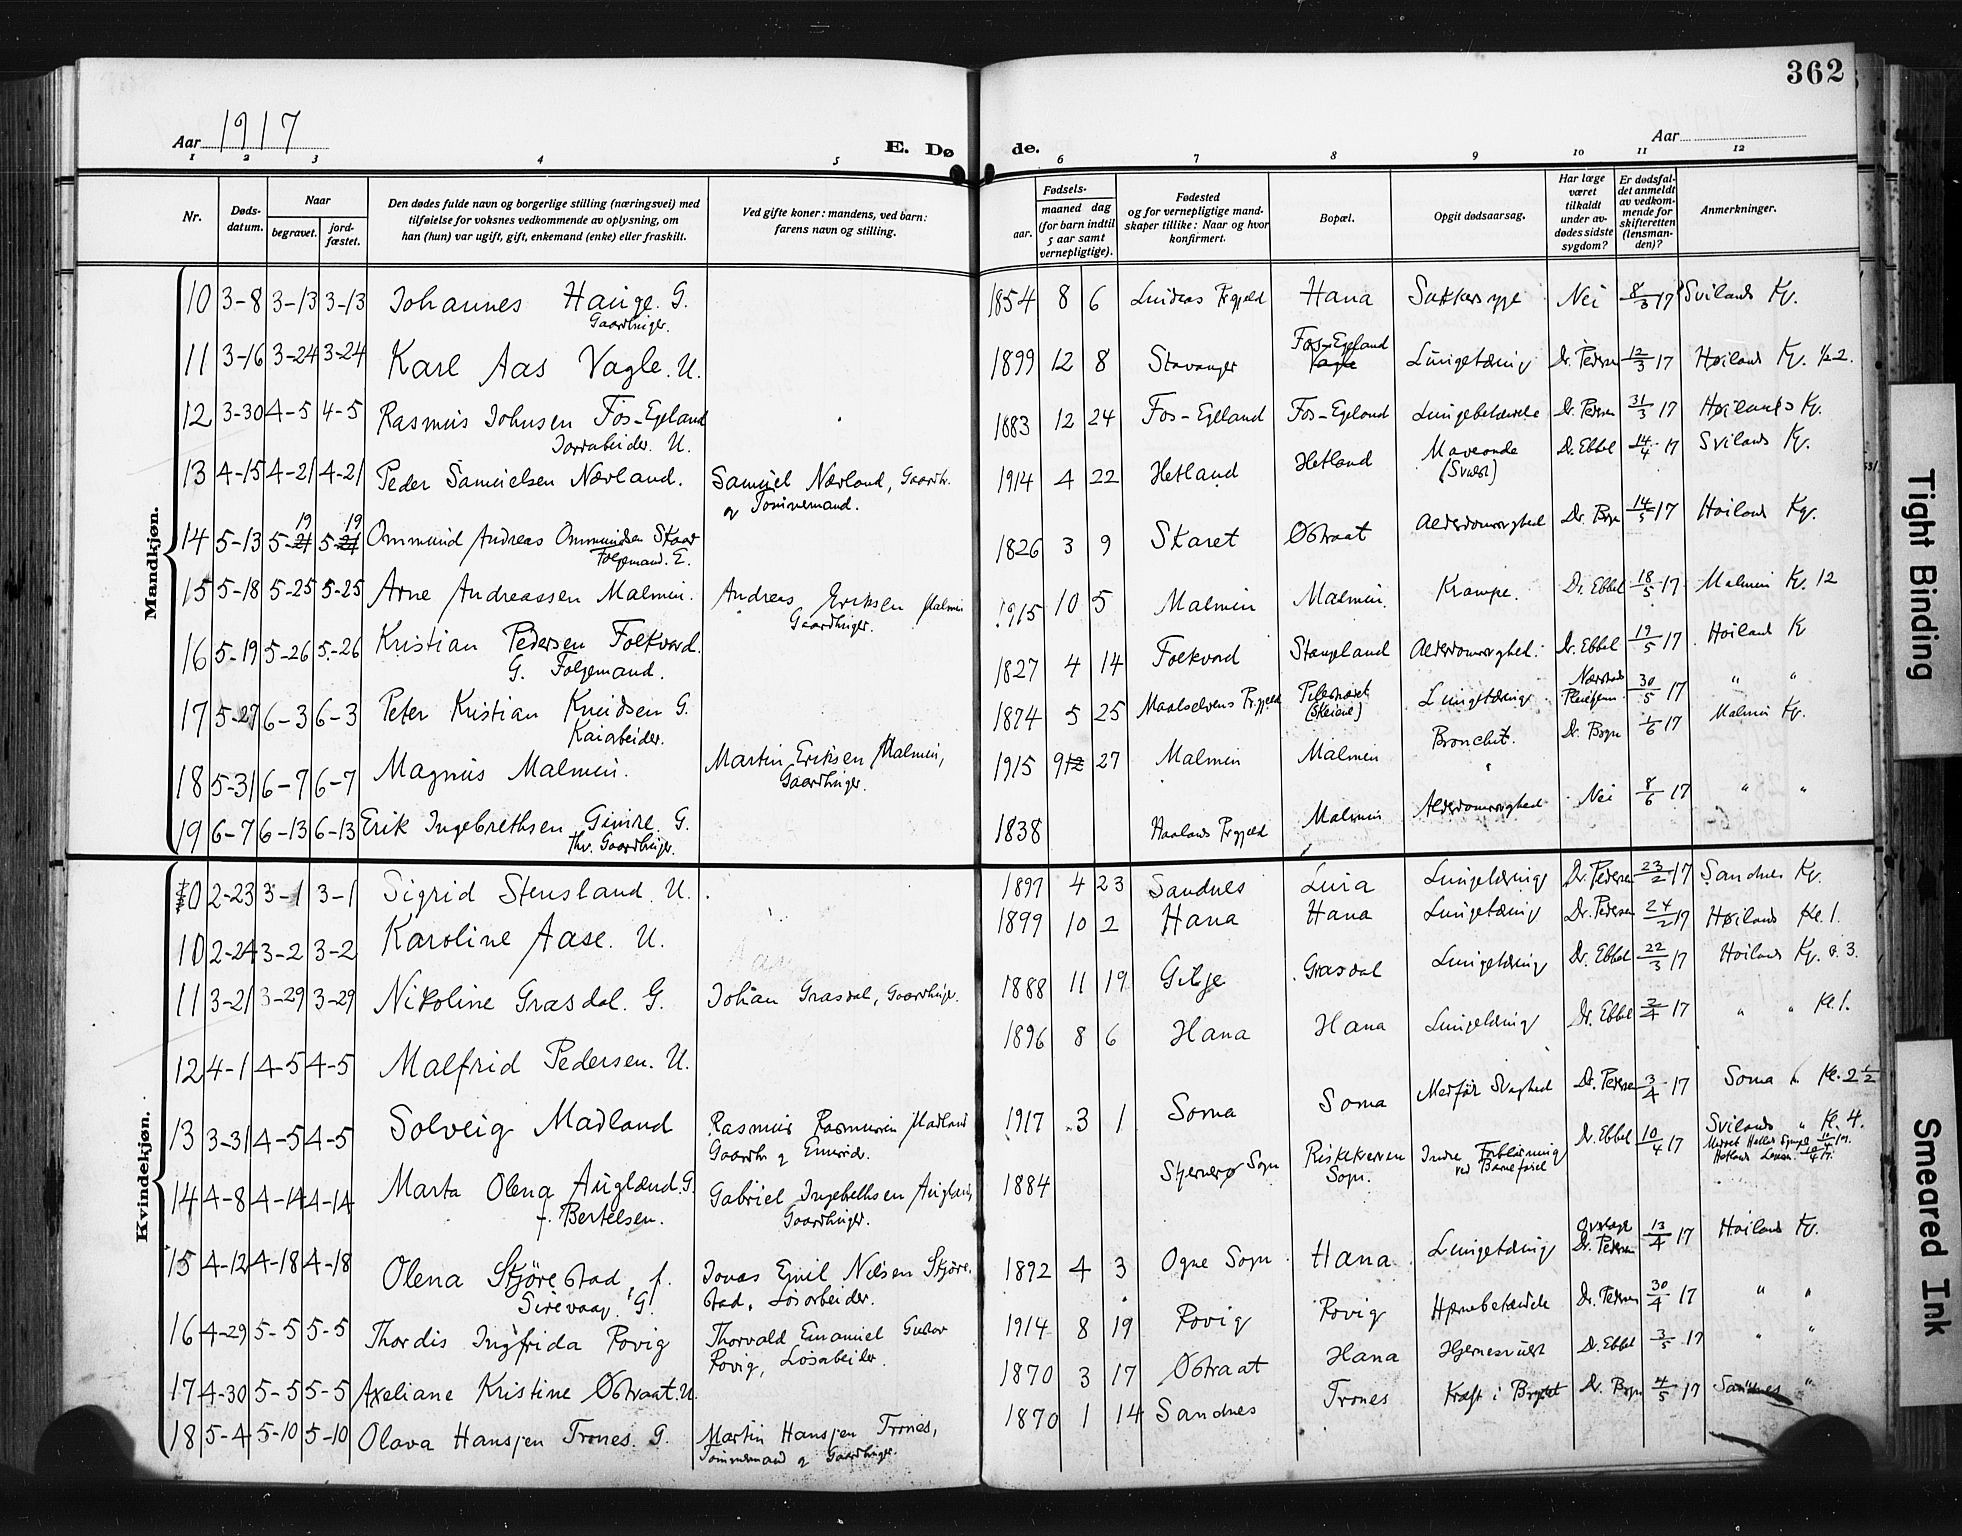 362
Aar 1917
E. Døde.
Aar
1 2 3 4 5 6 7 8 9 10 11 12
Nr.
Døds-
datum.
Naar
begravet.
jord-
fæstet.
Den dødes fulde navn og borgerlige stilling (næringsvei) med
tilføielse for voksnes vedkommende av oplysning, om
han (hun) var ugift, gift, enkemand (enke) eller fraskilt.
Ved gifte koner: mandens, ved barn:
farens navn og stilling.
Fødsels-
aar.
maaned dag
(for barn indtil
5 aar samt
vernepligtige).
Fødested
og for vernepligtige mand-
skaper tillike: Naar og hvor
konfirmert.
Bopæl.
Opgit dødsaarsag.
Har læge
været
tilkaldt
under av-
dødes sidste
sygdom?
Er dødsfal-
det anmeldt
av vedkom-
mende for
skifteretten
(lensman-
den)?
Anmerkninger.
Mandkjøn.
10 3-8 3-13 3-13 Johannes Hauge. G. 1854 8 6 Hana Sukkersyge Nei 8/3 17 Svilands Kg.
Gaardbruger.
11 3-16 3-24 3-24 Karl Aas Vagle. U. 1899 12 8 Stavanger Fos-Egeland Lungetæring Dr. Pedersen 12/3 17 Høilands Kg. 1/2 2.
Vagle
12 3-30 4-5 4-5 Rasmus Johnsen Fos-Egeland 1883 12 24 Fos-Egeland Fos-Egeland Lungebetændelse Dr. Pedersen 31/3 17 Høilands Kg.
Jordarbeider. U.
13 4-15 4-21 4-21 Peder Samuelsen Nævland. Samuel Nævland, Gaardbr. 1914 4 22 Hetland Hetland Maveonde Dr. Ebbel 14/4 17 Svilands Kg.
og Tømmermand. (Svulst)
14 5-13 5-21 19 5-21 19 Ommund Andreas Ommundsen Skaar 1826 3 9 Skaret Østraat Alderdomssvaghed Dr. Bryn 14/5 17 Høilands Kg.
Følgemand. E.
15 5-18 5-25 5-25 Arne Andreassen Malmin. Andreas Eriksen Malmin 1915 10 5 Malmin Malmin. Krampe. Dr. Ebbel 18/5 17 Malmin Kg. 12
Gaardbruger.
16 5-19 5-26 5-26 Kristian Pedersen Folkvord. 1827 4 14 Folkvord Stangeland Alderdomssvaghed. Dr. Ebbel 19/5 17 Høiland K
G. Følgemand.
17 5-27 6-3 6-3 Peter Kristian Knudsen G. 1874 5 25 Maalselvens Prgjeld (Skeiene) Lungetæring 30/5 17 " "
Kaiarbeider.
18 5-31 6-7 6-7 Magnus Malmin. Martin Eriksen Malmin, 1915 9 12 27 Malmin Malmin Bronchit. Dr. Bryn 1/6 17 Malmin Kg.
Gaardbruger.
19 6-7 6-13 6-13 Erik Ingebrethsen Gimre. G. 1838 Haalands Prgjeld Malmin Alderdomssvaghed Nei 8/6 17 " "
fhv. Gaardbruger.
Kvindekjøn.
10 2-23 3-1 3-1 Sigrid Stensland. U. 1897 4 23 Sandnes Lura Lungetæring Dr. Pedersen 23/2 17 Sandnes Kg.
10 2-24 3-2 3-2 Karoline Aase. U. 1899 10 2 Hana Hana Lungetæring Dr. Pedersen 24/2 17 Høilands Kl. 1.
11 3-21 3-29 3-29 Nikoline Grasdal. G. Johan Grasdal, Gaardbruger. 1888 11 19 Gilje Grasdal Lungetæring Dr. Ebbel 22/3 17 Høiland Kg. 3.
12 4-1 4-5 4-5 Malfrid Pedersen. U. 1896 8 6 Hana Hana Lungetæring Dr. Ebbel 2/4 17 " " Kl. 1.
13 3-31 4-5 4-5 Solveig Madland Rasmus Rasmussen Madland 1917 3 1 Soma Soma Medfør Svaghed Dr. Pedersen 3/4 17 Soma Kl. 2 1/2
14 4-8 4-14 4-14 Marta Olena Auglænd. G. Gabriel Ingebrethsen Auglænd, 1884 Stjernerø Sogn Riskekverven Indre Forblødning Dr. Ebbel 10/4 17 Svilands " Kl. 4.
f. Bertelsen. Gaardbruger. Sogn. ved Barnefødsel
15 4-12 4-18 4-18 Olena Skjørestad, f. Jonas Emil Nilsen Skjøre- 1892 4 3 Ogne Sogn Hana Lungetæring Dr. Pedersen 13/4 17 Høiland Kg.
Sirevaag. G. stad. Løsarbeider.
16 4-29 5-5 5-5 Thordis Ingfrida Rovig Thorvald Emanuel Gustav 1914 8 19 Rovig Rovig Hjernebetændelse Dr. Pedersen 30/4 17 " "
Rovig, Løsarbeider.
17 4-30 5-5 5-5 Axeliane Kristine Østraat. U. 1870 3 17 Østraat Hana Hjernesvulst Dr. Ebbel 3/5 17 " "
18 5-4 5-10 5-10 Olava Hansjen Trones. G. Martin Hansjen Trones, 1870 1 14 Sandnes Trones Kræft i Brystet Dr. Bryn 4/5 17 Sandnes "
Tømmermand og Gaardbruger.
Tight Binding
Smeared Ink